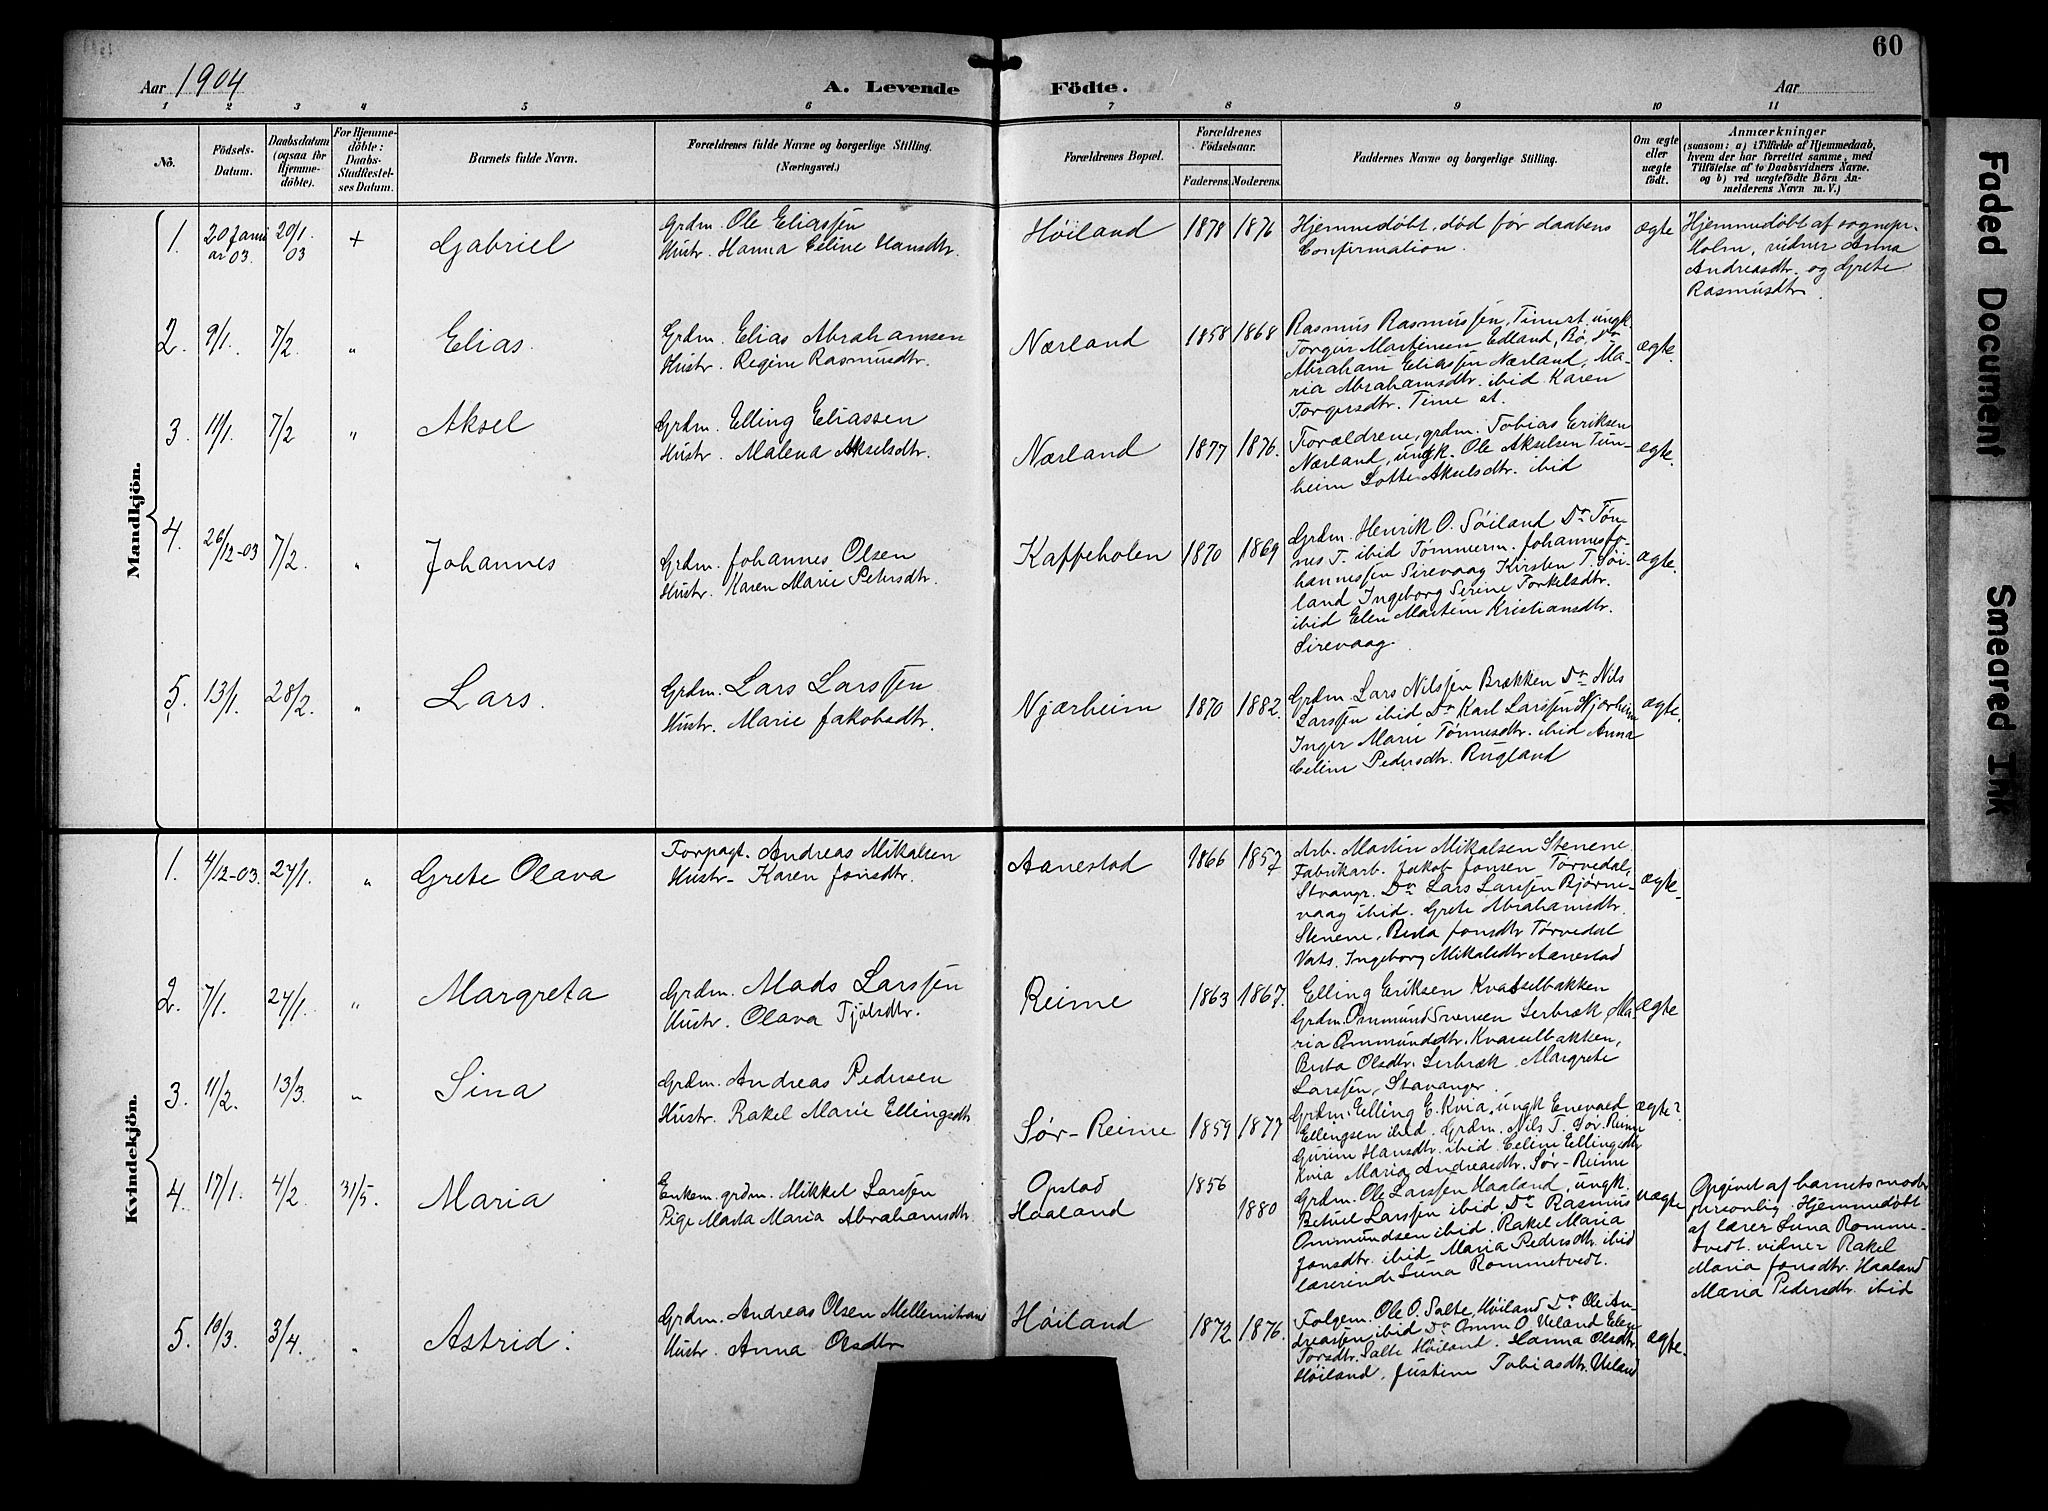 60
Aar 1904
A. Levende Födte.
Aar
1 2 3 4 5 6 7 8 9 10 11
No.
Födsels-
Datum.
Daabsdatum
(ogsaa for
Hjemme-
döbte).
For Hjemme-
döbte:
Daabs-
Stadfæstel-
ses Datum.
Barnets fulde Navn.
Forældrenes fulde Navne og borgerlige Stilling.
(Næringsvei.)
Forældrenes Bopæl.
Forældrenes
Födselsaar.
Faderens. Moderens.
Faddernes Navne og borgerlige Stilling.
Om ægte
eller
uægte
födt.
Anmærkninger
(saasom: a) i Tilfælde af Hjemmedaab,
hvem der har forrettet samme, med
Tilföielse af to Daabsvidners Navne.
og b) ved uægtefödte Börn An-
melderens Navn m. V.)
Mandkjön.
1. 20 Janu
ar 03. 20/1
03 + Gabriel
Grdm. Ole Eliassen
Hustr. Hanna Celine Hansdtr.
Høiland 1878 1876
Hjemmedøbt, død før daabens
Confirmation.
ægte
Hjemmedøbt af sognepr.
Holm, vidner Anna
Andreasdtr. og Grete
Rasmusdtr.
2. 9/1. 7/2 " Elias.
Grdm. Elias Abrahamsen
Hustr. Regine Rasmusdtr.
Nærland 1858 1868
Rasmus Rasmussen, Time st. ungk.
Torger Martinsen Edland, Bø, Do
Abraham Eliassen Nærland, Ma-
ria Abrahamsdtr. ibid Karen
Torgersdtr. Time st.
ægte.
3. 11/1. 7/2 " Aksel
Grdm. Elling Eliassen
Hustr. Malena Akselsdtr.
Nærland 1877 1876.
Forældrene, grdm. Tobias Eriksen
Nærland, ungk. Ole Akselsen Tun-
heim Lotte Akselsdtr. ibid
ægte.
4. 26/12-03 7/2. " Johannes
Grdm. Johannes Olsen
Hustr. Karen Marie Petersdtr.
Kaffeholen 1870 1869
Grdm. Henrik O. Søiland Do Tøn
nes T. ibid Tømmerm. Johannes Jo-
hannessen Sirevaag Kirsten T. Søi-
land Ingeborg Serine Torkelsdtr.
ibid Elen Martine Kristiansdtr.
Sirevaag.
ægte.
5. 13/1. 28/2. " Lars.
Grdm. Lars Larssen
Hustr. Marie Jakobsdtr.
Njærheim 1870 1882.
Grdm. Lars Nilssen Brækken Do Nils
Larssen ibid Do Karl Larssen Njærheim
Inger Marie Tønnesdtr. ibid Anna
Celine Pedersdtr. Rugland
ægte.
Kvindekjön.
1. 4/12-03. 24/1. " Grete Olava
Forpagt. Andreas Mikalsen
Hustr- Karen Jonsdtr.
Aanestad 1866 1857
Arb. Martin Mikalsen Stenene
Fabrikarb. Jakob Jonsen Tørvedal,
Stvangr. Do Lars Larssen Bjørne-
vaag ibid. Grete Abrahamsdtr.
Stenene, Berta Jonsdtr Tørvedal
Vats. Ingeborg Mikalsdtr Aanestad
ægte-
2. 7/1. 24/1. " Margreta
Grdm. Mads Larssen
Hustr. Olava Tjølsdtr.
Reime 1863 1867.
Elling Eriksen Kvasselbakken
Grdm. Ommund Svensen Serbræk Ma-
ria Ommundsdtr. Kvasselbakken,
Berta Olsdtr. Serbræk. Margrete
Larssen, Stavanger.
ægte
3. 11/2. 13/3. " Sina
Grdm. Andreas Pedersen
Hustr. Rakel Marie Ellingsdtr
Sør-Reime 1859 1877
Grdm. Elling E. Kvia, ungk Enevald
Ellingsen ibid. Grdm. Nils T. Sør-Reime
Gurine Hansdtr. ibid Celine Ellingsdtr
Kvia Maria Andreasdtr. Sør-Reime
ægte?
4. 17/1. 4/2 31/5. Maria
Enkem. grdm. Mikkel Larssen
Pige Marta Maria Abrahamsdtr.
Opstad
Haaland
1856
1880
Grdm. Ole Larssen Haaland, ungk.
Betuel Larssen ibid Do Rasmus
Ommundsen ibid. Rakel Maria
Jonsdtr. ibid Maria Pedersdtr. ibid
lærerinde Suna Rommetvedt.
uægte
Opgivet af barnets moder
personlig. Hjemmedøbt
af lærer Suna Romme-
tvedt. vidner Rakel
Maria Jonsdtr. Haaland
Maria Pedersdtr. ibid
5. 10/3. 3/4. " Astrid:
Grdm. Andreas Olsen Mellemstrand
Hustr. Anna Olsdtr
Høiland 1872 1876.
Folgem. Ole O. Salte, Høiland Do Ole An-
dreassen ibid Do Omm O. Ueland Elen
Torsdtr. Salte Høiland. Hanna Olsdtr
Høiland, Justine Tobiasdtr. Ueland
ægte.
Faded Document
Smeared Ink